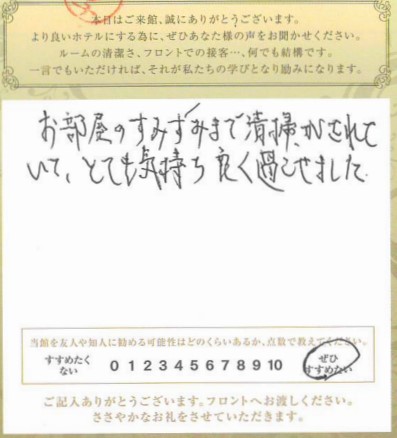 本日はご来館、誠にありがとうございます。
より良いホテルにする為に、ぜひあなた様の声をお聞かせください。
ルームの清潔さ、フロントでの接客…、何でも結構です。
一言でもいただければ、それが私たちの学びとなり励みになります。
お部屋のすみずみまで清掃がされて
いて、とても気持ち良く過ごせました
当館を友人や知人に勧める可能性はどのくらいあるか、点数で教えてください。
すすめたく
ない
0 1 2 3 4 5 6 7 8 9 10
ぜひ
すすめたい
ご記入ありがとうございます。フロントへお渡しください。
ささやかなお礼をさせていただきます。